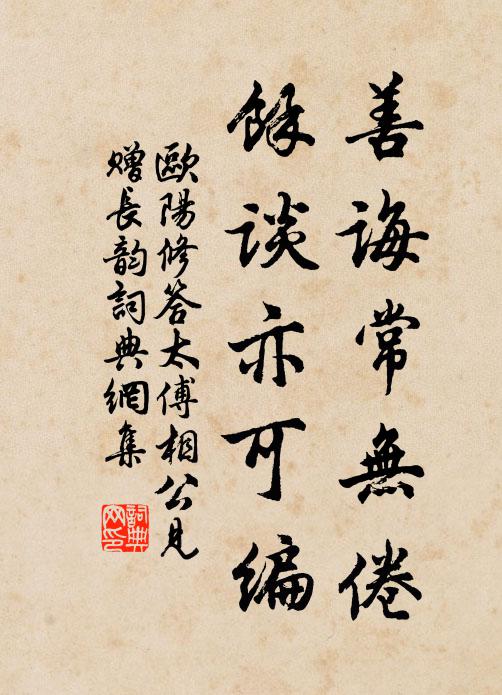 善誨常無倦
餘談亦可編
歐陽修答太傅相公見
贈長韵詞典網集
詞典
网印